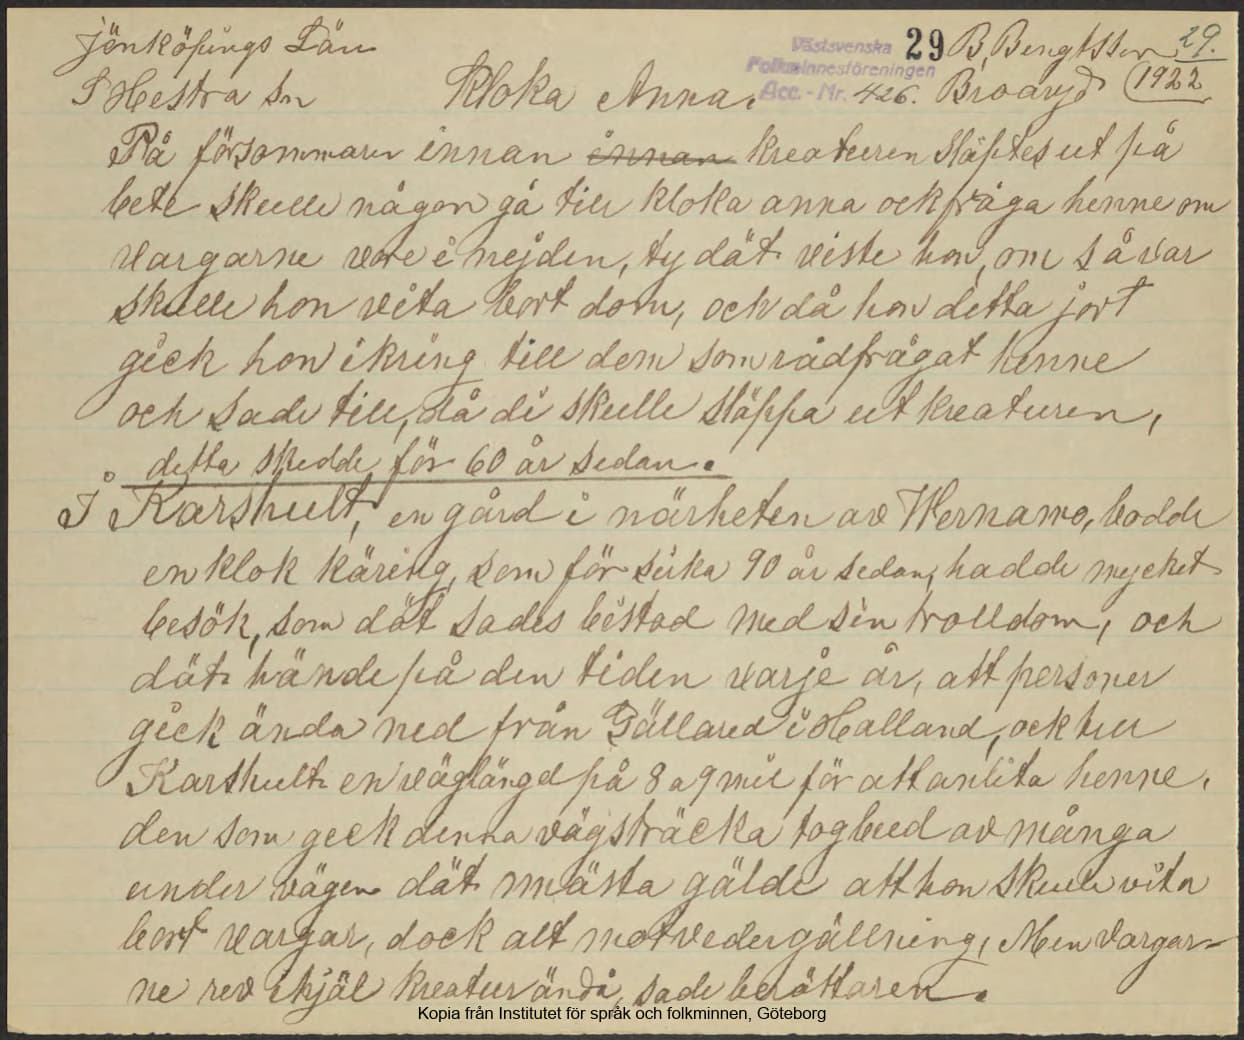 Jönköpings Län
S Hestra Sn
Kloka Anna.
Västsvenska
Folkminnesföreningen
Acc. - Nr. 426.
29 B. Bengtsson 29.
Broaryd 1922
På försommaren innan innan kreaturen släptes ut på
bete skulle någon gå till kloka anna ock fråga henne om
vargarne vore i nejden, ty dät viste hon, om så var
skulle hon vita bort dom, och då hon detta jort
gick hon ikring till dem som rådfrågat henne
och sade till, då di skulle släppa ut kreaturen,
detta skedde för 60 år sedan.
I Karshult, en gård i närheten av Wernamo, bodde
en klok käring, som för sirka 90 år sedan, hadde mycket
besök, som dät sades bistod med sin trolldom, och
dät hände på den tiden varje år, att personer
gick ända ned från Gällared i Halland, ock till
Karshult en väglängd på 8 a 9 mil för att anlita henne.
den som geck denna vägsträcka tog bud av många
under vägen dät mästa gälde att hon skulle vita
bort vargar, dock alt mot vedergällning, Men vargar-
ne rev ihjäl kreatur ändå, sade berättaren.
Kopia från Institutet för språk och folkminnen, Göteborg